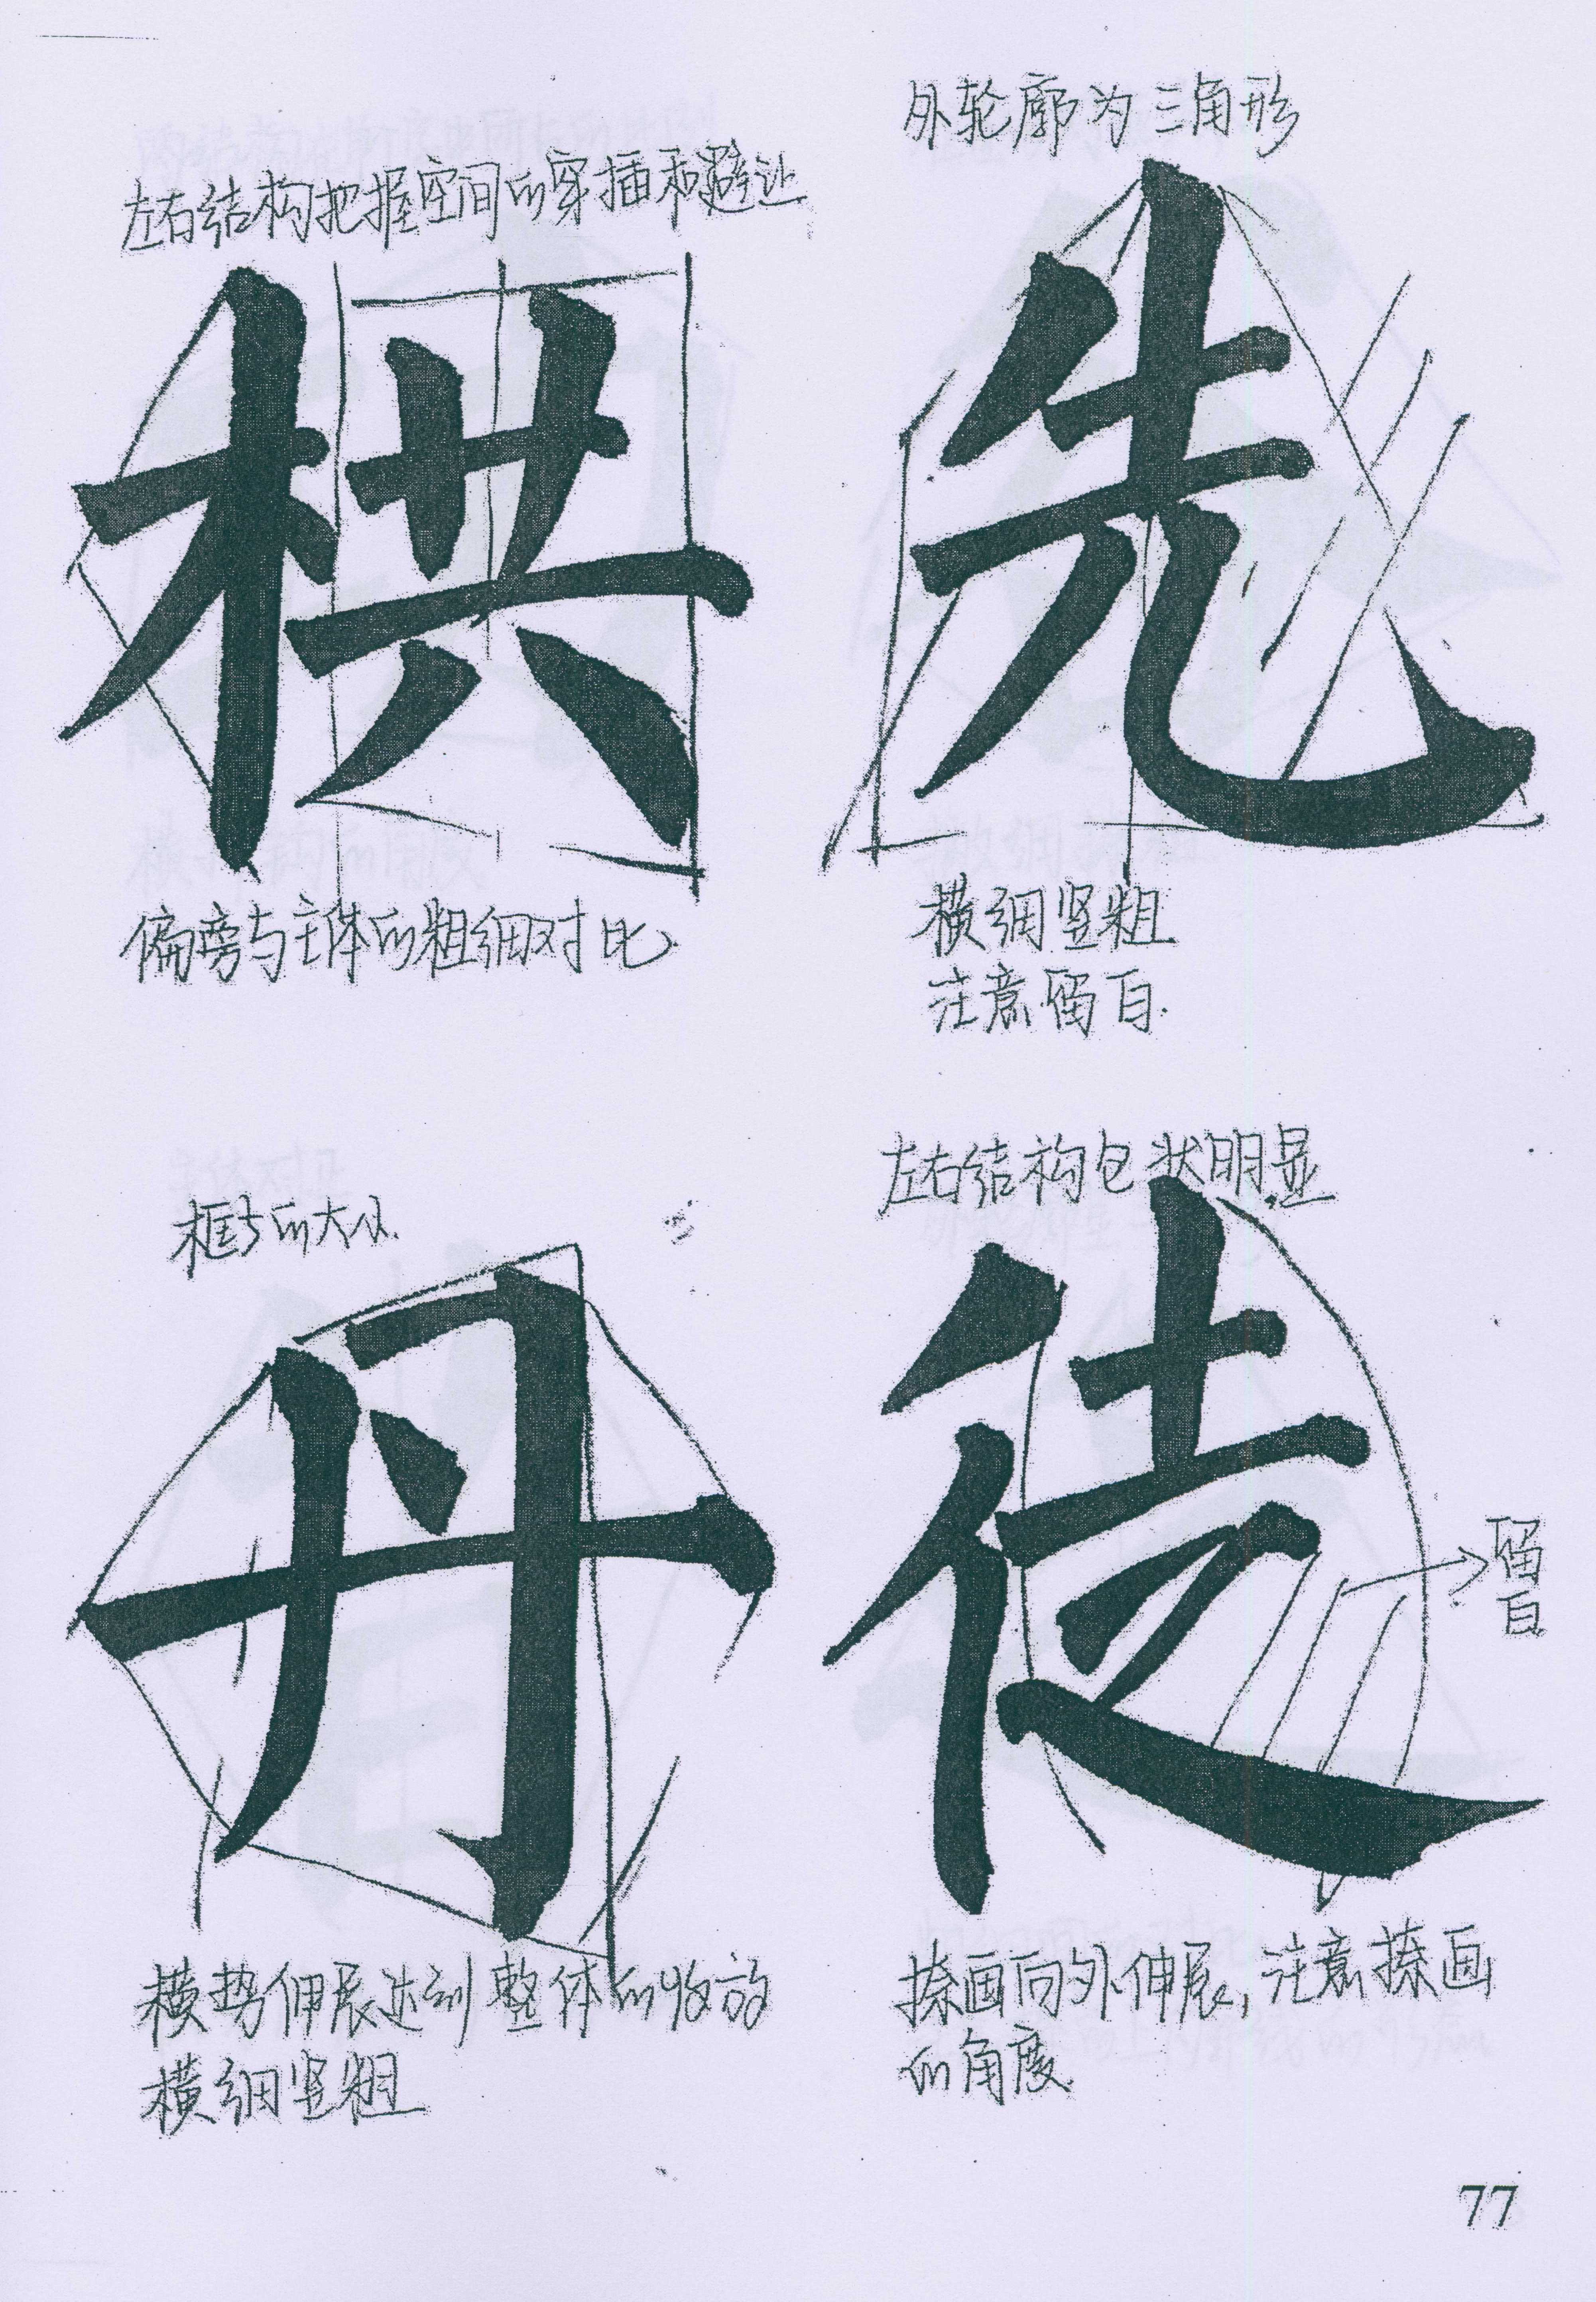 左右结构把握空间的穿插和避让
栱
偏旁与主体的粗细对比
外轮廓为三角形
先
横细竖粗
注意留白.
丹
横势伸展达到整体的收放
横细竖粗
左右结构包状明显
徒
留
白
捺画向外伸展,注意捺画
的角度
77